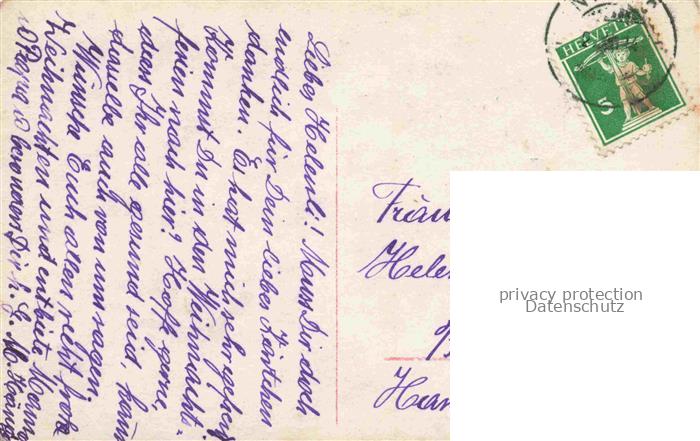 Liebes Helenli! Muss Dir doch
endlich für Dein liebes Kärtchen
danken. Es hat mich sehr gefreut
Kommst Du in den Weihnachts-
ferien nach hier? Hoffe gerne,
dass Ihr alle gesund seid, kann
dasselbe auch von uns sagen.
Wünsche Euch allen recht frohe
Weihnachten und entbiete Mama
Papa
HELVETIA
5
Fräu
Hele
privacy protection
Datenschutz